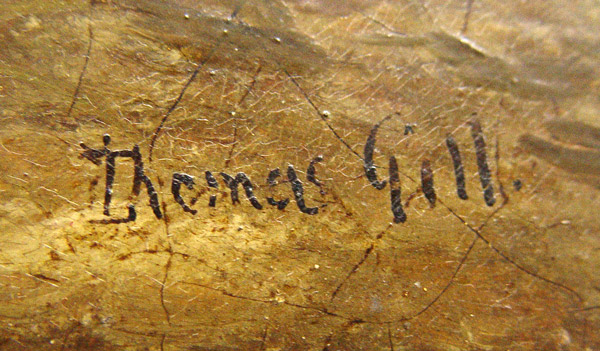 Thomas Gill.